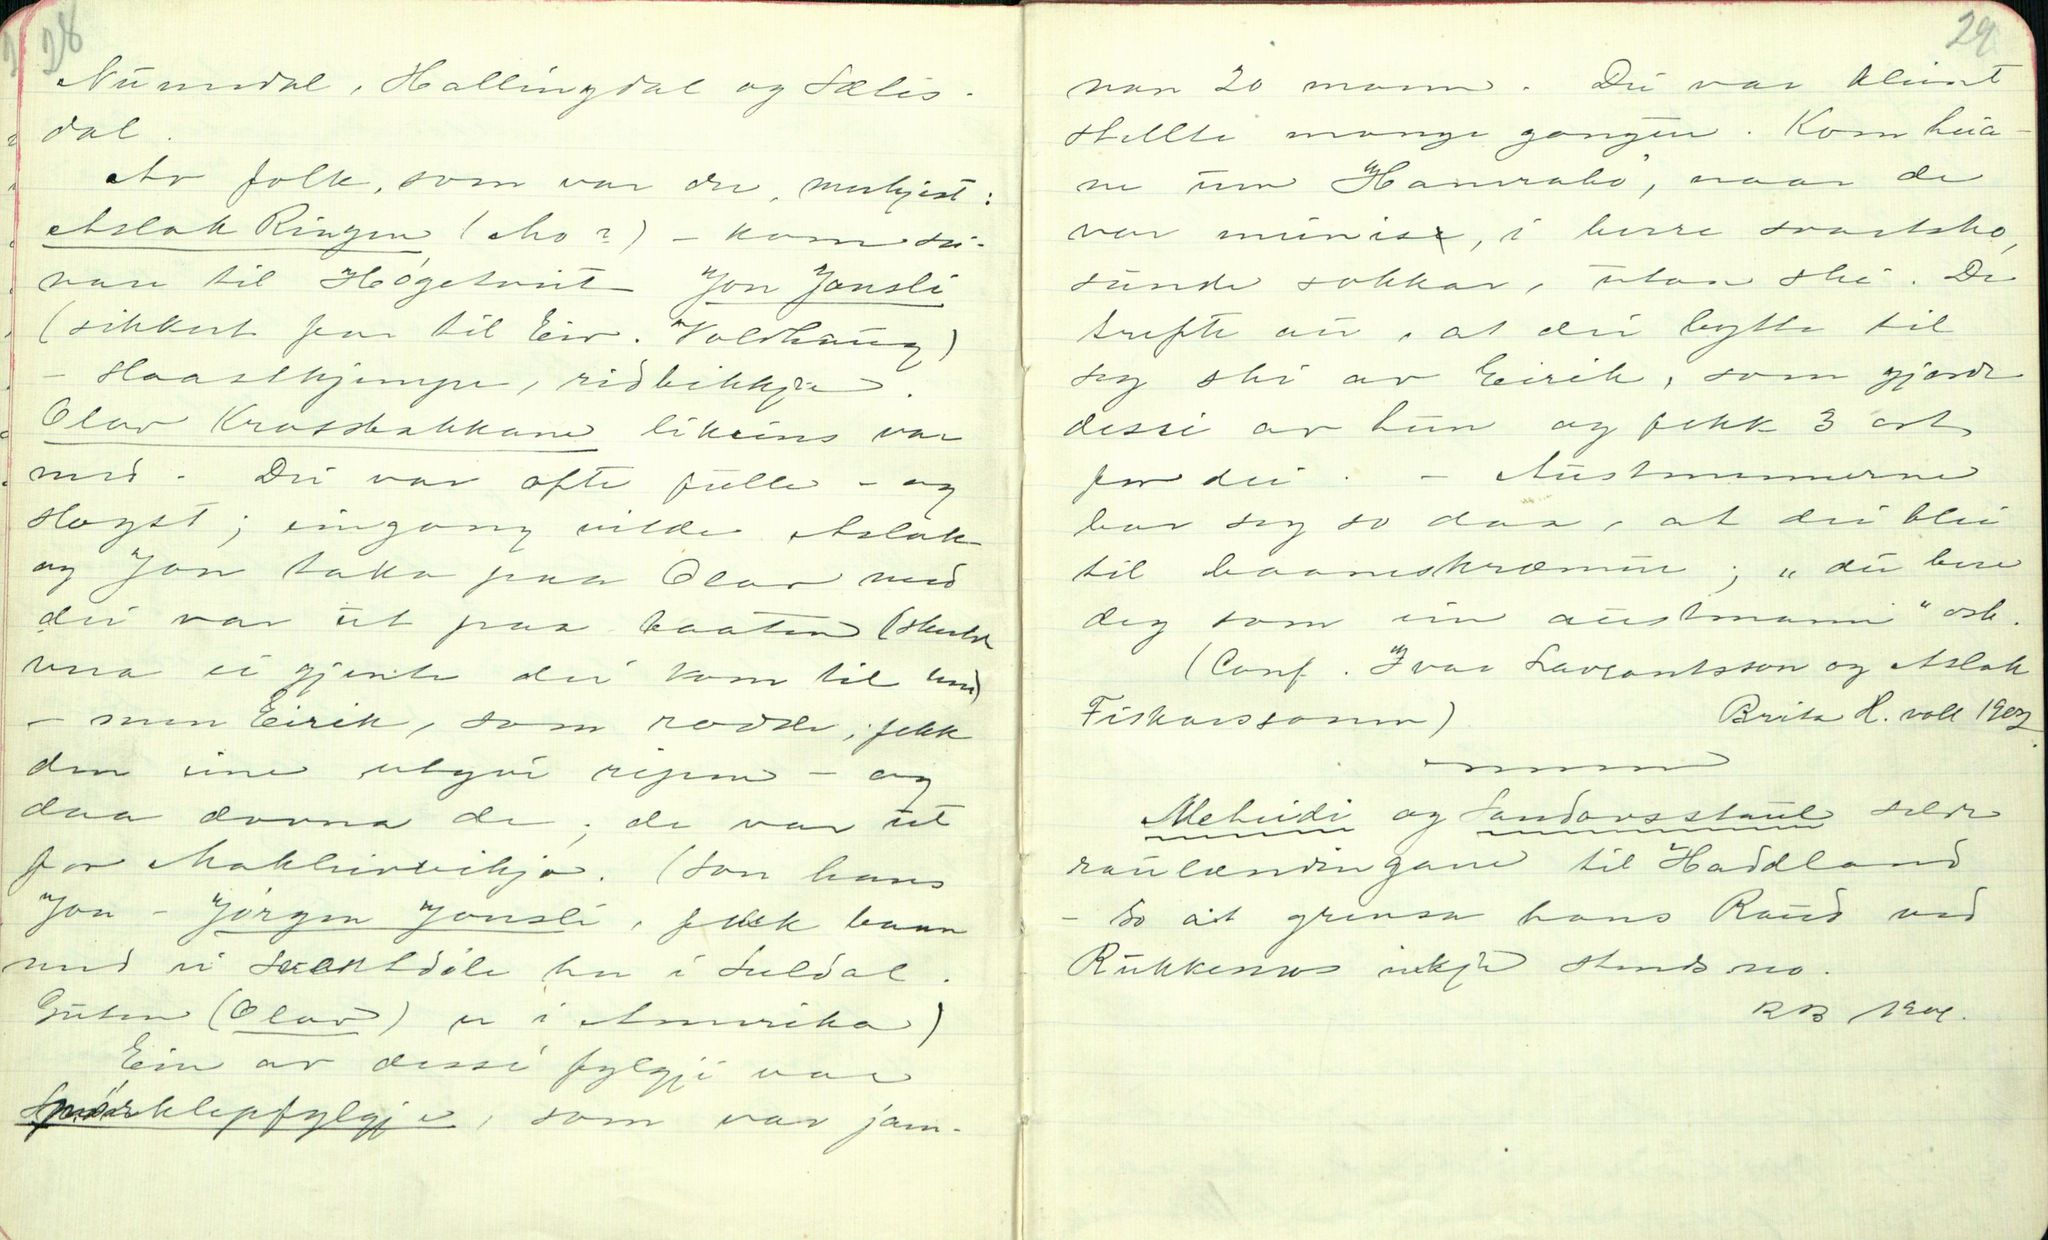 28
Numedal, Hallingdal og Sætis-
dal.
Av folk, som var der, merkjest:
Aslak Ringen (Mo?) – kom sei-
nare til Høgetveit – Jon Jonsli
(sikkert far til Eiv. Voldhaug)
– slaastkjempe, ridbikkje.
Olav Krossbakkane likeins var
med. Dei var ofte fulle – og
slogst; eingong vilde Aslak
og Jon taka paa Olav med
dei var ut paa baaten
ei gjente dei kom til
– men Eirik, som rodde, fekk
den eine utyvi ripen – og
daa dovna de; de var ut
for (Son hans
Jon – Jørgen Jonsli, fekk barn
med ei i Suldal.
Guten (Olav) er i Amerika)
Ein av dessi fylgji var
Smørkleppfylgje, som var jam-
29
nan 20 mann. Dei var kleint
stellte mange gongen. Kom heia-
ne um Hamrabø, naar de
var meinist, i berre svartsko,
sunde sokkar, utan ski. De
trefte au, at dei bytte til
seg ski av Eirik, som gjorde
dessi av hun og fekk 3 ort
for dei. – Austmennerne
bar seg so daa, at dei blei
til baaneskræmue; "du bere
deg som ein austmann" osb.
(Conf. Ivar Lavrantsson og Aslak
Fiskarssonen) Brita H. voll 1902.
Meheidi og Sandvsstaul selde
raulendingane til Haddland
– so at grensa hans Raud ved
Rukkenuos inkje stends no.
RB 1904.